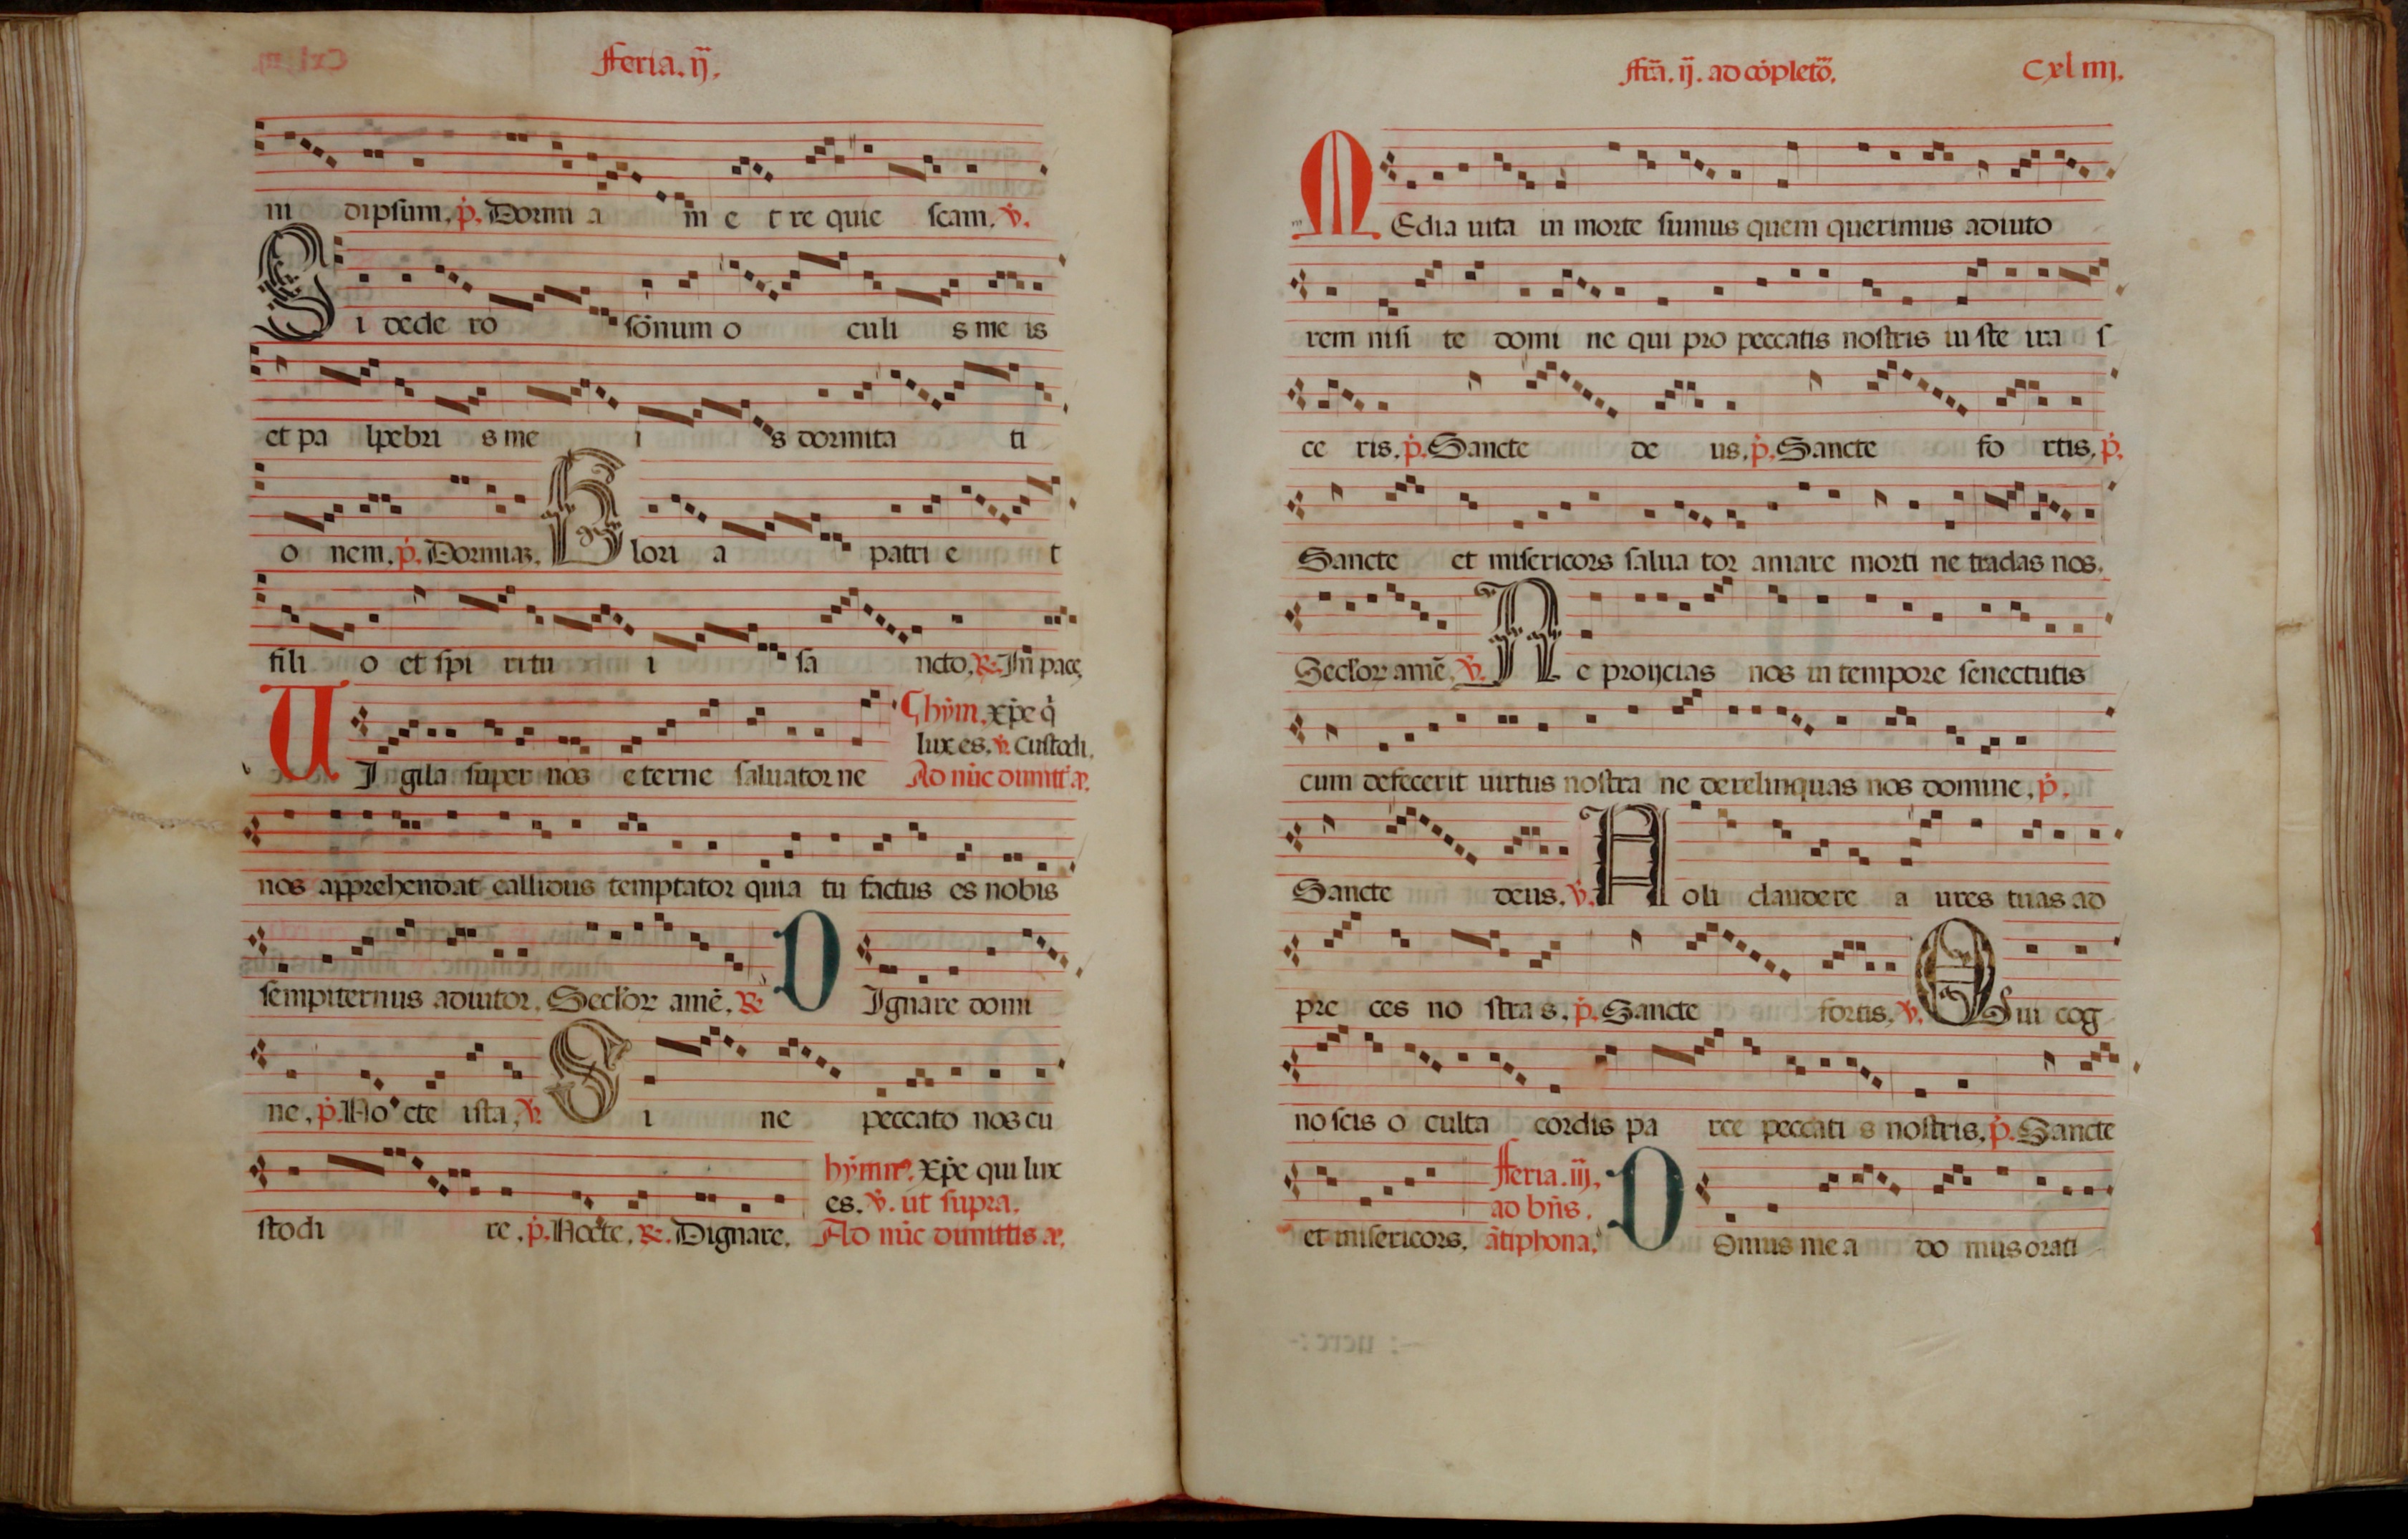 Feria. ij.
in dipsum. p̄. Dormi a m e t re quie scam. v̄.
Si dede ro sōnum o culi s me is
et pa lpebri s me i s dormita ti
o nem. p̄. Dormiaz. Glori a patri e t
fili o et spi ritu i sa ncto. R. In pace
UIgila super nos eterne saluator ne
hȳm. xp̄e q̇
lux es. v̄. Custodi.
Ad nūc dimitt æ.
nos apprehendat callidus temptator quia tu factus es nobis
sempiternus adiutor. Seclor amē. R. DIgnare domi
ne. p̄. No cte ista. v̄. Si ne peccato nos cu
stodi re. p̄. Nocte. R. Dignare.
hȳmn9. xp̄e qui lux
es. v̄. ut supra.
Ad nūc dimittis æ.
Fr̄ia. ij. ad cōpletō.
Cxl iiij.
MEdia uita in morte sumus quem querimus adiuto
rem nisi te domi ne qui pro peccatis nostris iu ste ira s
ce ris. p̄. Sancte de us. p̄. Sancte fo rtis. p̄.
Sancte et misericors salua tor amare morti ne tradas nos.
Seclor amē. v̄. Ne proijcias nos in tempore senectutis
cum defecerit uirtus nostra ne derelinquas nos domine. p̄.
Sancte deus. v̄. Noli claudere a ures tuas ad
pre ces no stra s. p̄. Sancte fortis. v̄. Qui cog
no scis o culta cordis pa rce peccati s nostris. p̄. Sancte
et misericors.
Feria. iij.
ad bn̄s.
ātiphona.
DOmus me a do mus orati